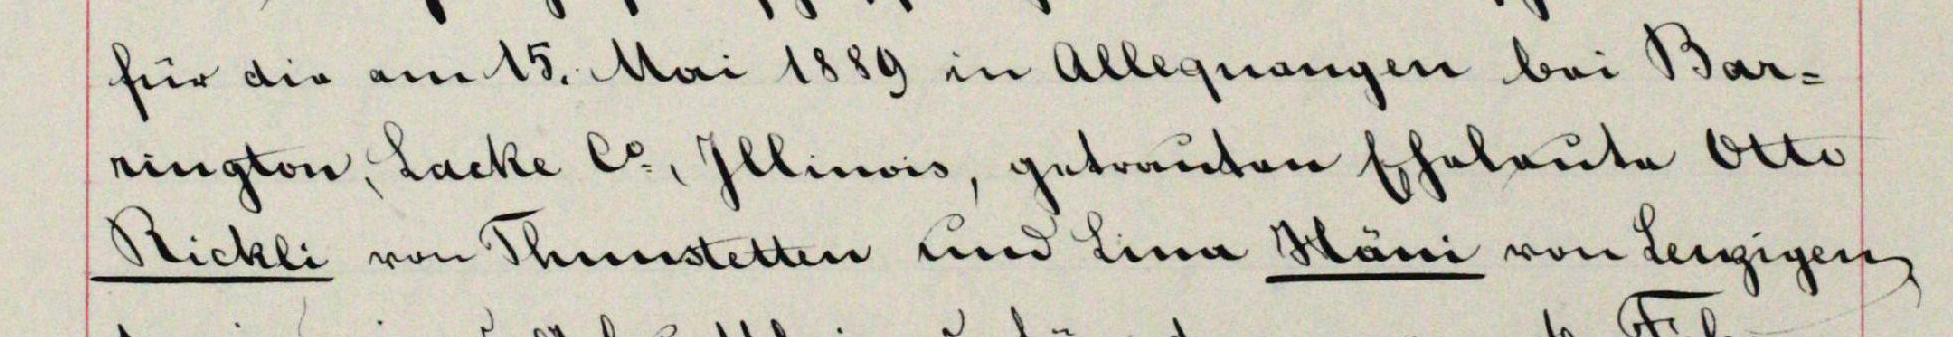 für die am 15. Mai 1889 in Allequangen bei Bar=
rington, Lacke Co., Illinois, getrauten Eheleute Otto
Rickli von Thunstetten und Lina Mäni von Leuzigen